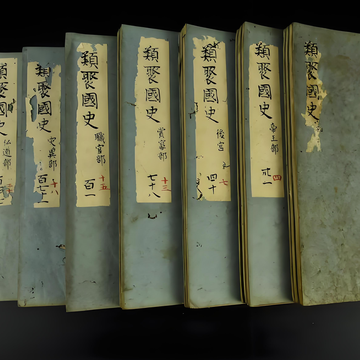 類聚國史
類聚國史
帝王部
四
卅一
類聚國史
後宮
七
四十
類聚國史
賞宴部
十三
七十八
類聚國史
職官部
十五
百一
類聚國史
災異部
十八
百七十一
類聚國史
佛道部